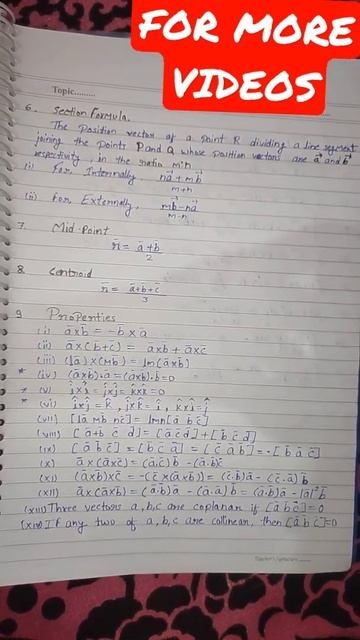 FOR MORE
VIDEOS
Topic.........
6. Section Formula.
The position vector of a point R dividing a line segment
joining the points P and Q whose position vectors are a⃗ and b⃗
respectivity, in the ratio m:n
(i) For Internally na⃗ + mb⃗ / m+n
(ii) For Externally, mb⃗ - na⃗ / m-n
7. Mid-Point
r̄ = ā+b̄ / 2
8. Centroid
r̄ = ā+b̄+c̄ / 3
9 Properties
(i) ā×b̄ = -b̄×ā
(ii) ā×(b̄+c̄) = ā×b̄ + ā×c̄
(iii) (lā)×(mb̄) = lm(ā×b̄)
* (iv) (ā×b̄)·ā = (ā×b̄)·b̄ = 0
* (v) î×î = ĵ×ĵ = k̂×k̂ = 0
* (vi) î×ĵ = k̂, ĵ×k̂ = î, k̂×î = ĵ
(vii) [lā mb̄ nc̄] = lmn[ā b̄ c̄]
(viii) [ā+b̄ c̄ d̄] = [ā c̄ d̄] + [b̄ c̄ d̄]
(ix) [ā b̄ c̄] = [b̄ c̄ ā] = [c̄ ā b̄] = -[b̄ ā c̄]
(x) ā×(ā×c̄) = (ā·c̄)b̄ - (ā·b̄)c̄
(xi) (ā×b̄)×c̄ = -(c̄×(ā×b̄)) = (c̄·b̄)ā - (c̄·ā)b̄
(xii) ā×(ā×b̄) = (ā·b̄)ā - (ā·ā)b̄ = (ā·b̄)ā - |ā|²b̄
(xiii) Three vectors a,b,c are coplanar if [ā b̄ c̄] = 0
(xiv) If any two of a,b,c are collinear, then [ā b̄ c̄] = 0
Teacher's Signature